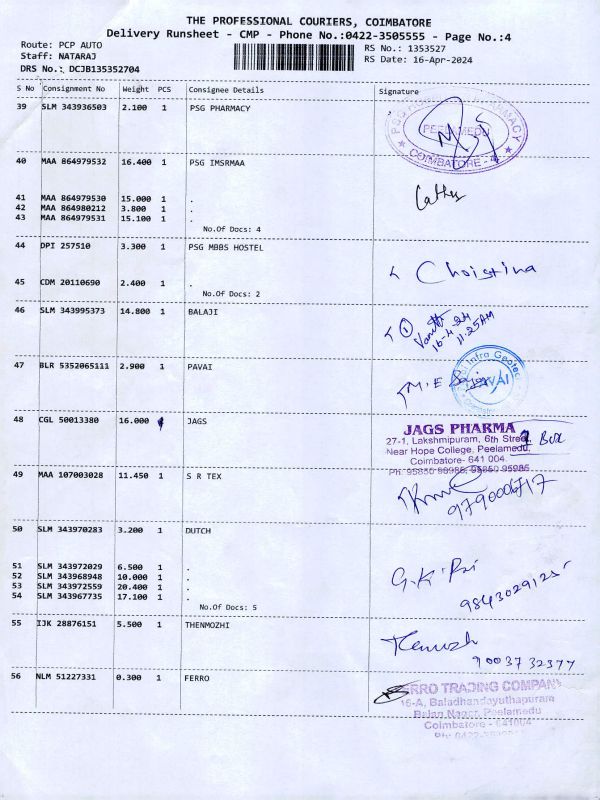 THE PROFESSIONAL COURIERS, COIMBATORE
Delivery Runsheet - CMP - Phone No.:0422-3505555 - Page No.:4
Route: PCP AUTO
Staff: NATARAJ
DRS No.: DCJB135352704
RS No.: 1353527
RS Date: 16-Apr-2024
S No Consignment No Weight PCS Consignee Details Signature
39 SLM 343936503 2.100 1 PSG PHARMACY
PHARMACY
PEELAMEDU
COIMBATORE - 4
40 MAA 864979532 16.400 1 PSG IMSRMAA
41 MAA 864979530 15.000 1 .
42 MAA 864980212 3.800 1 .
43 MAA 864979531 15.100 1 .
No.Of Docs: 4
44 DPI 257510 3.300 1 PSG MBBS HOSTEL
Christina
45 CDM 20110690 2.400 1 .
No.Of Docs: 2
46 SLM 343995373 14.800 1 BALAJI
1
16-4-24
11:25AM
47 BLR 5352065111 2.900 1 PAVAI
Infra Geotec
PAVAI
M.E
48 CGL 50013380 16.000 JAGS
JAGS PHARMA
27-1, Lakshmipuram, 6th Street,
Near Hope College, Peelamedu,
Coimbatore- 641 004.
Ph: 95850 96986, 95850 95986
Box
49 MAA 107003028 11.450 1 S R TEX
50 SLM 343970283 3.200 1 DUTCH
51 SLM 343972029 6.500 1 .
52 SLM 343968948 10.000 1 .
53 SLM 343972559 20.400 1 .
54 SLM 343967735 17.100 1 .
No.Of Docs: 5
G.K.
9843029125
55 IJK 28876151 5.500 1 THENMOZHI
9003732377
56 NLM 51227331 0.300 1 FERRO
FERRO TRADING COMPANY
16-A, Baladhandayuthapuram
Balan Nagar, Peelamedu
Coimbatore - 641004